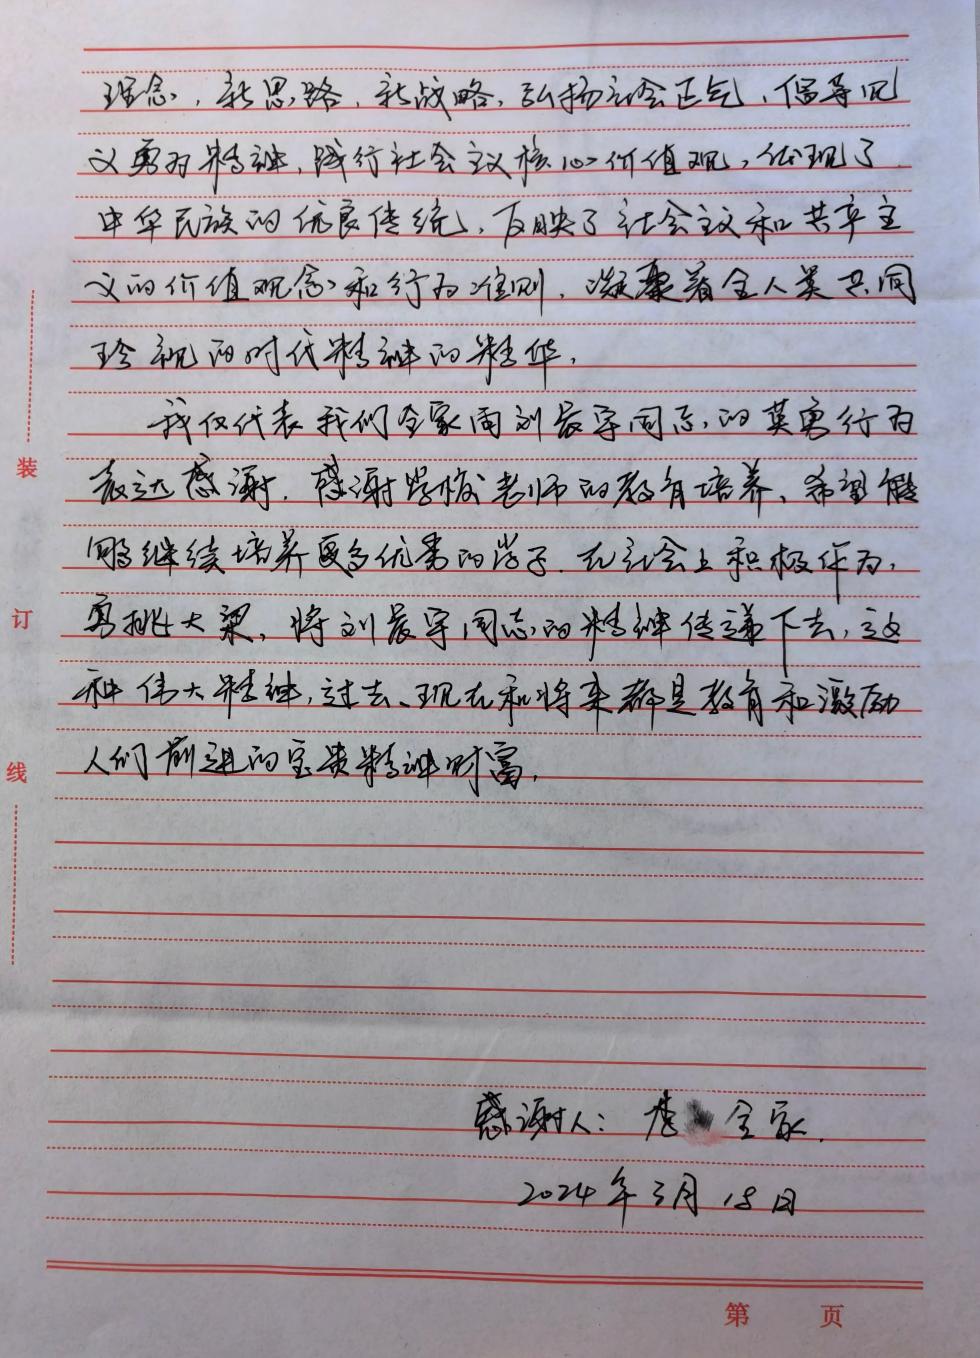 理念、新思路、新战略,弘扬社会正气、倡导见
义勇为精神,践行社会主义核心价值观,体现了
中华民族的优良传统,反映了社会主义和共产主
义的价值观念和行为准则,凝聚着全人类共同
珍视的时代精神的精华。
我仅代表我们全家向刘晨宇同志的英勇行为
表达感谢。感谢学校老师的教育培养、希望能
够继续培养更多优秀的学子。在社会上积极作为,
勇挑大梁,将刘晨宇同志的精神传递下去,这
种伟大精神,过去、现在和将来都是教育和激励
人们前进的宝贵精神财富。
装
订
线
感谢人:李 全家.
2024年3月18日
第 页